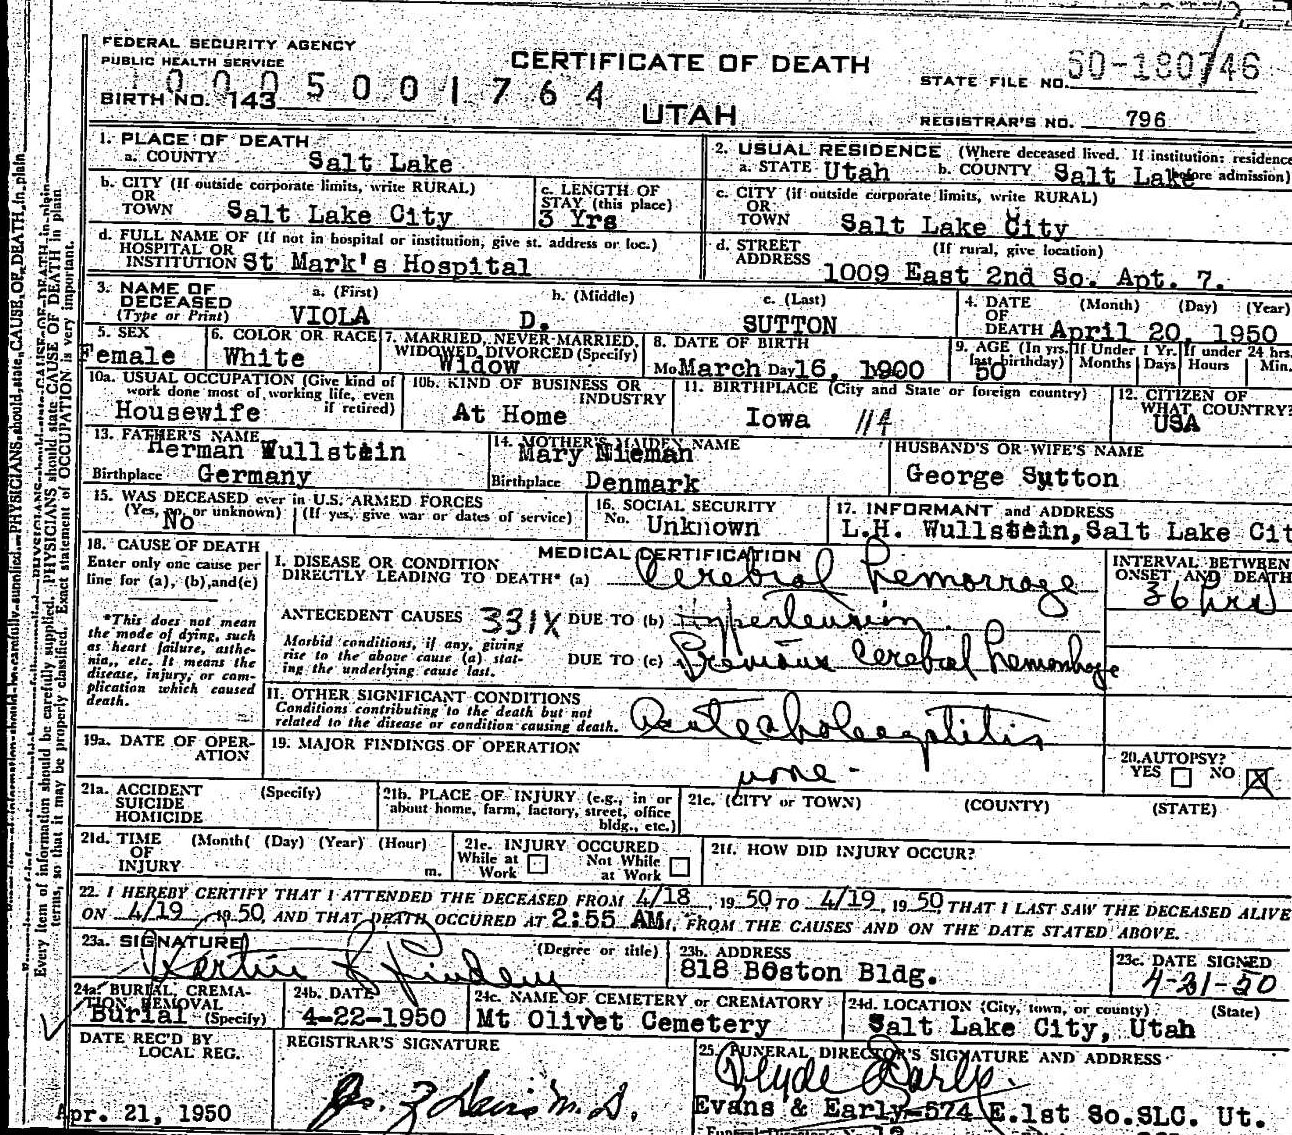 FEDERAL SECURITY AGENCY
PUBLIC HEALTH SERVICE
CERTIFICATE OF DEATH
UTAH
STATE FILE NO. 50-180746
1000500 1764
BIRTH NO. 143
REGISTRAR'S NO. 796
1. PLACE OF DEATH
a. COUNTY Salt Lake
2. USUAL RESIDENCE (Where deceased lived. If institution: residence before admission)
a. STATE Utah b. COUNTY Salt Lake
b. CITY (If outside corporate limits, write RURAL)
OR
TOWN Salt Lake City
c. LENGTH OF
STAY (this place)
3 Yrs
c. CITY (if outside corporate limits, write RURAL)
OR
TOWN Salt Lake City
d. FULL NAME OF (If not in hospital or institution, give st. address or loc.)
HOSPITAL OR
INSTITUTION St Mark's Hospital
d. STREET (If rural, give location)
ADDRESS 1009 East 2nd So. Apt. 7.
3. NAME OF
DECEASED
(Type or Print)
a. (First) b. (Middle) c. (Last)
VIOLA D. SUTTON
4. DATE (Month) (Day) (Year)
OF
DEATH April 20, 1950
5. SEX
Female
6. COLOR OR RACE
White
7. MARRIED, NEVER MARRIED,
WIDOWED, DIVORCED (Specify)
Widow
8. DATE OF BIRTH
Mo March Day 16, 1900
9. AGE (In yrs. last birthday)
50
If Under 1 Yr.
Months Days
If under 24 hrs.
Hours Min.
10a. USUAL OCCUPATION (Give kind of
work done most of working life, even
if retired)
Housewife
10b. KIND OF BUSINESS OR
INDUSTRY
At Home
11. BIRTHPLACE (City and State or foreign country)
Iowa 114
12. CITIZEN OF
WHAT COUNTRY?
USA
13. FATHER'S NAME
Herman Wullstein
Birthplace Germany
14. MOTHER'S MAIDEN NAME
Mary Nieman
Birthplace Denmark
HUSBAND'S OR WIFE'S NAME
George Sutton
15. WAS DECEASED ever in U.S. ARMED FORCES
(Yes, no, or unknown) (If yes, give war or dates of service)
No
16. SOCIAL SECURITY
No. Unknown
17. INFORMANT and ADDRESS
L.H. Wullstein, Salt Lake Cit
18. CAUSE OF DEATH
Enter only one cause per
line for (a), (b), and (c)
*This does not mean
the mode of dying, such
as heart failure, asthe-
nia, etc. It means the
disease, injury, or com-
plication which caused
death.
MEDICAL CERTIFICATION
I. DISEASE OR CONDITION
DIRECTLY LEADING TO DEATH* (a) Cerebral hemorrage
INTERVAL BETWEEN
ONSET AND DEATH
36 hrs
ANTECEDENT CAUSES 331X DUE TO (b) Hypertension
Morbid conditions, if any, giving
rise to the above cause (a) stat-
ing the underlying cause last.
DUE TO (c) Previous cerebral hemorrhage
II. OTHER SIGNIFICANT CONDITIONS
Conditions contributing to the death but not
related to the disease or condition causing death.
19a. DATE OF OPER-
ATION
19. MAJOR FINDINGS OF OPERATION
none -
20. AUTOPSY?
YES NO X
21a. ACCIDENT (Specify)
SUICIDE
HOMICIDE
21b. PLACE OF INJURY (e.g., in or
about home, farm, factory, street, office
bldg., etc.)
21c. (CITY or TOWN) (COUNTY) (STATE)
21d. TIME (Month( (Day) (Year) (Hour)
OF
INJURY m.
21e. INJURY OCCURED
While at Work Not While at Work
21f. HOW DID INJURY OCCUR?
22. I HEREBY CERTIFY THAT I ATTENDED THE DECEASED FROM 4/18, 19 50 TO 4/19, 19 50 THAT I LAST SAW THE DECEASED ALIVE
ON 4/19, 19 50, AND THAT DEATH OCCURED AT 2:55 AM., FROM THE CAUSES AND ON THE DATE STATED ABOVE.
23a. SIGNATURE (Degree or title)
23b. ADDRESS
818 Boston Bldg.
23c. DATE SIGNED
4-21-50
24a. BURIAL, CREMA-
TION, REMOVAL
Burial (Specify)
24b. DATE
4-22-1950
24c. NAME OF CEMETERY or CREMATORY
Mt Olivet Cemetery
24d. LOCATION (City, town, or county) (State)
Salt Lake City, Utah
DATE REC'D BY
LOCAL REG.
Apr. 21, 1950
REGISTRAR'S SIGNATURE
25. FUNERAL DIRECTOR'S SIGNATURE AND ADDRESS
Evans & Early-574 E.1st So.SLC. Ut.
Every item of information should be carefully supplied. PHYSICIANS should state CAUSE OF DEATH in plain
terms, so that it may be properly classified. Exact statement of OCCUPATION is very important.